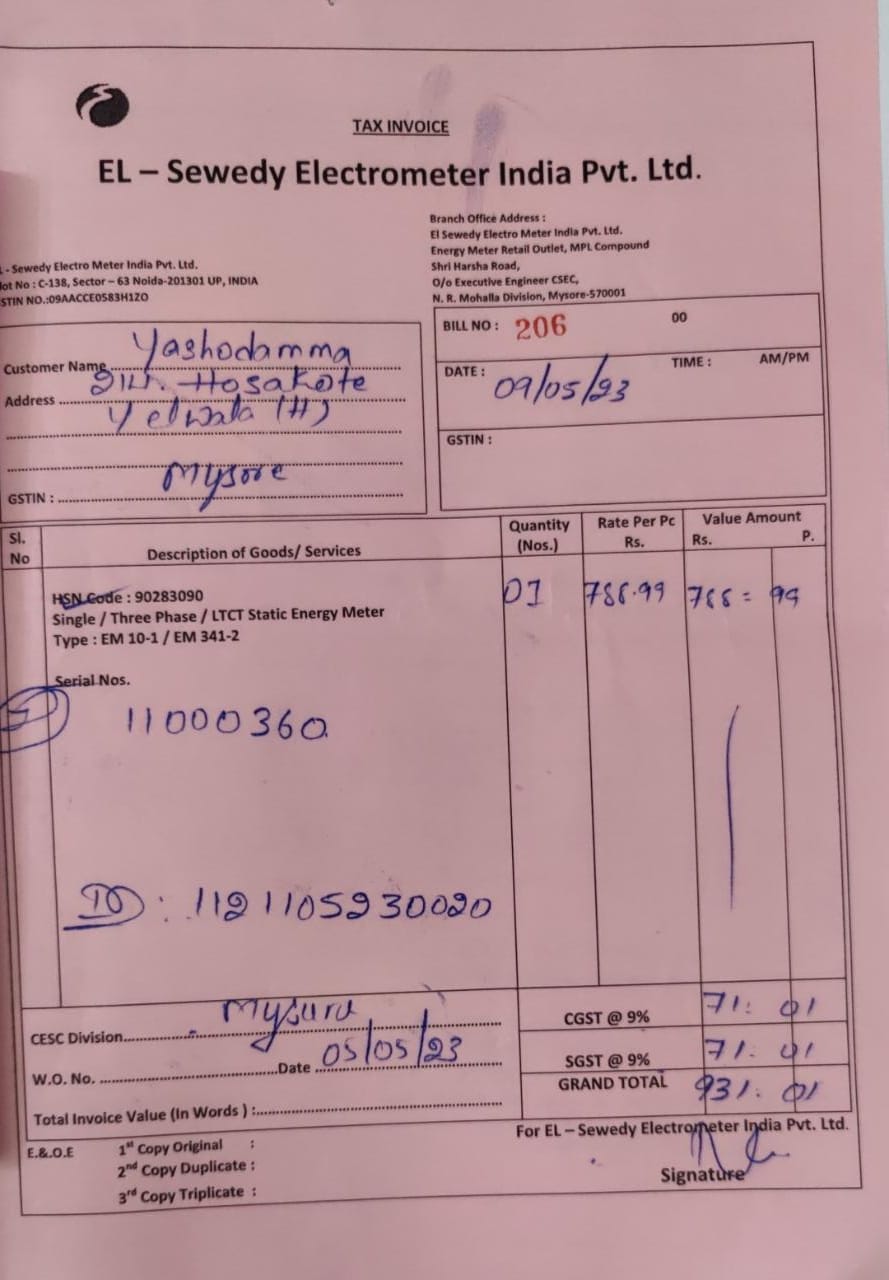 TAX INVOICE
EL – Sewedy Electrometer India Pvt. Ltd.
- Sewedy Electro Meter India Pvt. Ltd.
lot No : C-138, Sector – 63 Noida-201301 UP, INDIA
STIN NO.:09AACCE0583H1ZO
Branch Office Address :
El Sewedy Electro Meter India Pvt. Ltd.
Energy Meter Retail Outlet, MPL Compound
Shri Harsha Road,
O/o Executive Engineer CSEC,
N. R. Mohalla Division, Mysore-570001
Customer Name Yashodamma
Address Hosakote
Yelwala (H)
Mysore
GSTIN :
BILL NO : 206 00
DATE : 09/05/23 TIME : AM/PM
GSTIN :
Sl. No Description of Goods/ Services Quantity (Nos.) Rate Per Pc Rs. Value Amount Rs. P.
HSN Code : 90283090 01 788.99 788 = 99
Single / Three Phase / LTCT Static Energy Meter
Type : EM 10-1 / EM 341-2
Serial Nos.
11000360
ID : 1121105230020
CESC Division Mysuru
W.O. No. Date 05/05/23
Total Invoice Value (In Words ) :
CGST @ 9% 71. 01
SGST @ 9% 71. 01
GRAND TOTAL 931. 01
E.&.O.E 1st Copy Original :
2nd Copy Duplicate :
3rd Copy Triplicate :
For EL – Sewedy Electrometer India Pvt. Ltd.
Signature